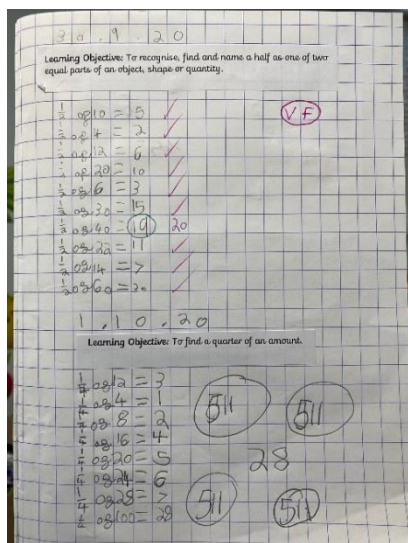 30.9.20
Learning Objective: To recognise, find and name a half as one of two
equal parts of an object, shape or quantity.
VF
1/2 of 10 = 5
1/2 of 4 = 2
1/2 of 12 = 6
1/2 of 20 = 10
1/2 of 6 = 3
1/2 of 30 = 15
1/2 of 40 = 19 20
1/2 of 22 = 11
1/2 of 14 = 7
1/2 of 60 = 30
1.10.20
Learning Objective: To find a quarter of an amount.
1/4 of 12 = 3
1/4 of 4 = 1
1/4 of 8 = 2
1/4 of 16 = 4
1/4 of 20 = 5
1/4 of 24 = 6
1/4 of 28 = 7
of 100 = 28
511 511
28
511 511